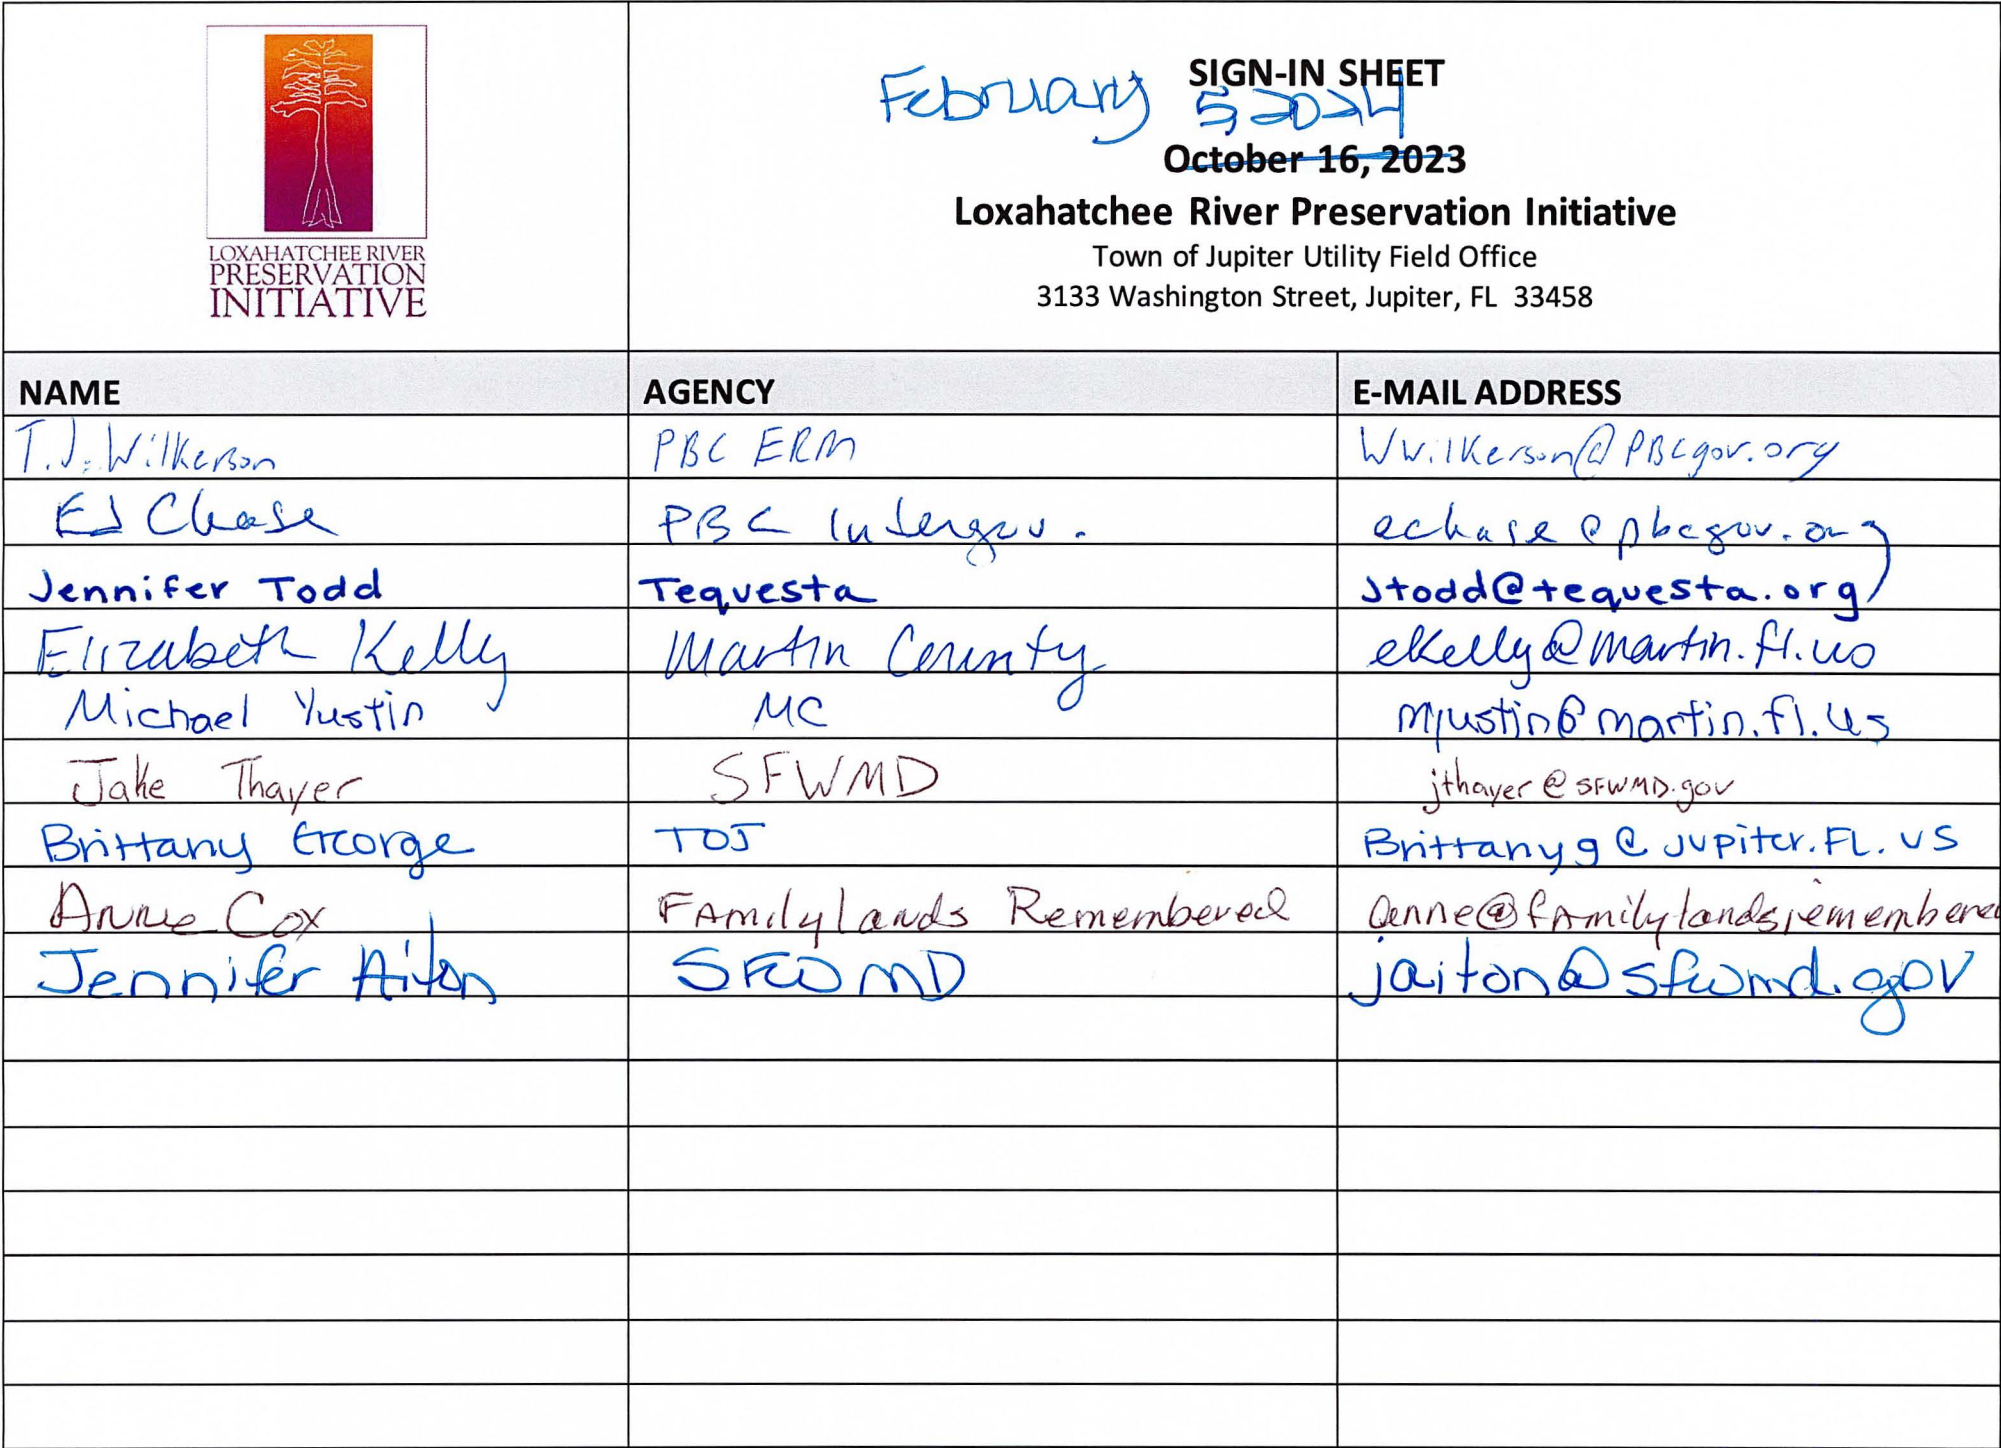 LOXAHATCHEE RIVER
PRESERVATION
INITIATIVE
SIGN-IN SHEET
February 5, 2024
October 16, 2023
Loxahatchee River Preservation Initiative
Town of Jupiter Utility Field Office
3133 Washington Street, Jupiter, FL 33458
NAME AGENCY E-MAIL ADDRESS
T.J. Wilkerson PBC ERM Wwilkerson@PBCgov.org
Ed Chase PBC Intergov. echase@pbcgov.org
Jennifer Todd Tequesta Jtodd@tequesta.org
Elizabeth Kelly Martin County ekelly@martin.fl.us
Michael Yustin MC myustin@martin.fl.us
Jake Thayer SFWMD jthayer@SFWMD.gov
Brittany George TOJ Brittanyg@jupiter.FL.US
Anne Cox Familylands Remembered anne@familylandsremembered
Jennifer Aiton SFWMD jaiton@sfwmd.gov